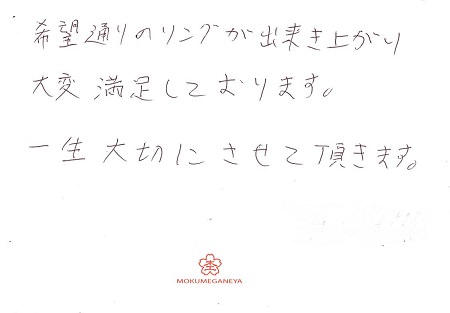 希望通りのリングが出来き上がり
大変満足しております。
一生大切にさせて頂きます。
MOKUMEGANEYA